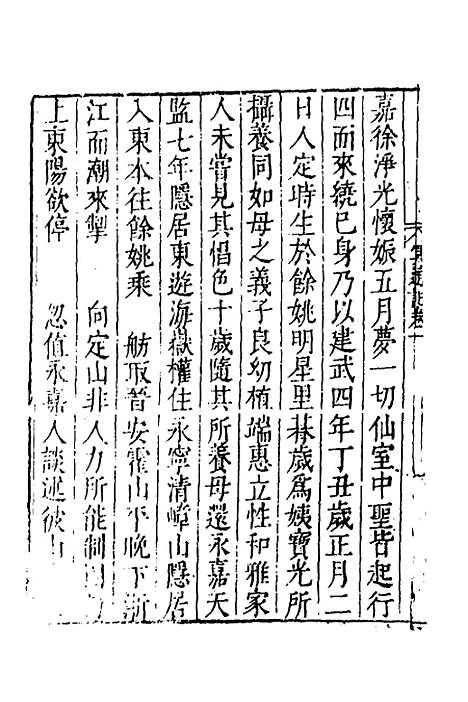 嘉徐淨光懷娠五月夢一切仙室中聖皆起行
四而來繞巳身乃以建武四年丁丑歲正月二
日人定時生於餘姚明星里朞歲為姨寶光所
攝養同如母之義子良幼植端惠立性和雅家
人未嘗見其慍色十歲隨其所養母還永嘉天
監七年隱居東遊海嶽權住永寧清嶂山隱居
入東本往餘姚乘 舫取晉安霍山平晚下浙
江而潮來掣 向定山非人力所能制
上東陽欲停 忽值永嘉人談述彼山